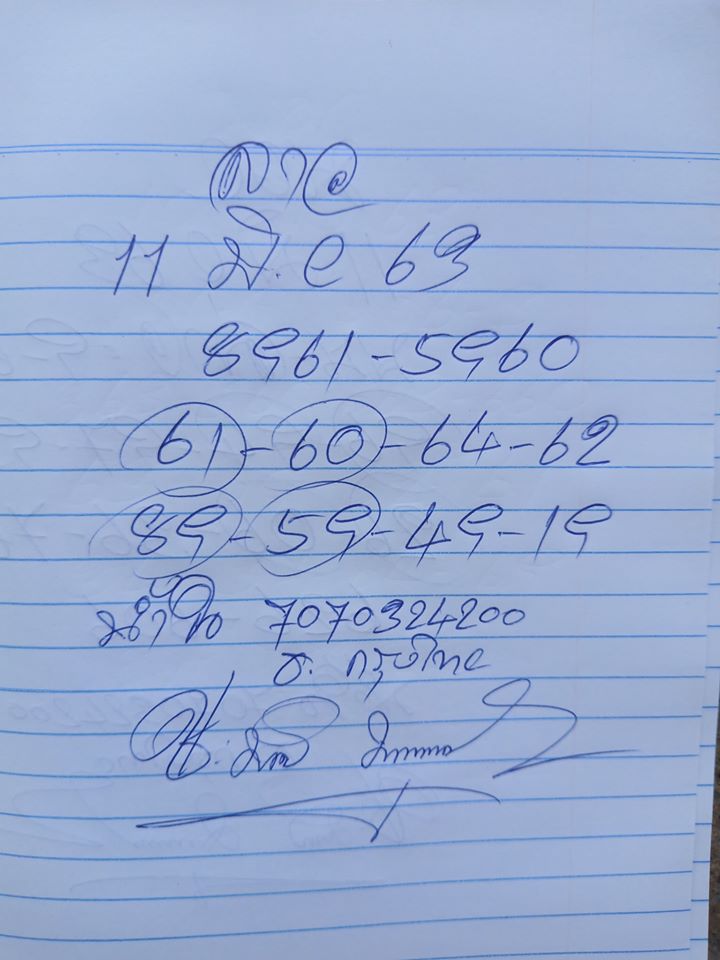 ลาว
11 มิ.ย 63
8961-5960
61-60-64-62
89-59-49-19
น้ำใจ 7070324200
ธ. กรุงไทย